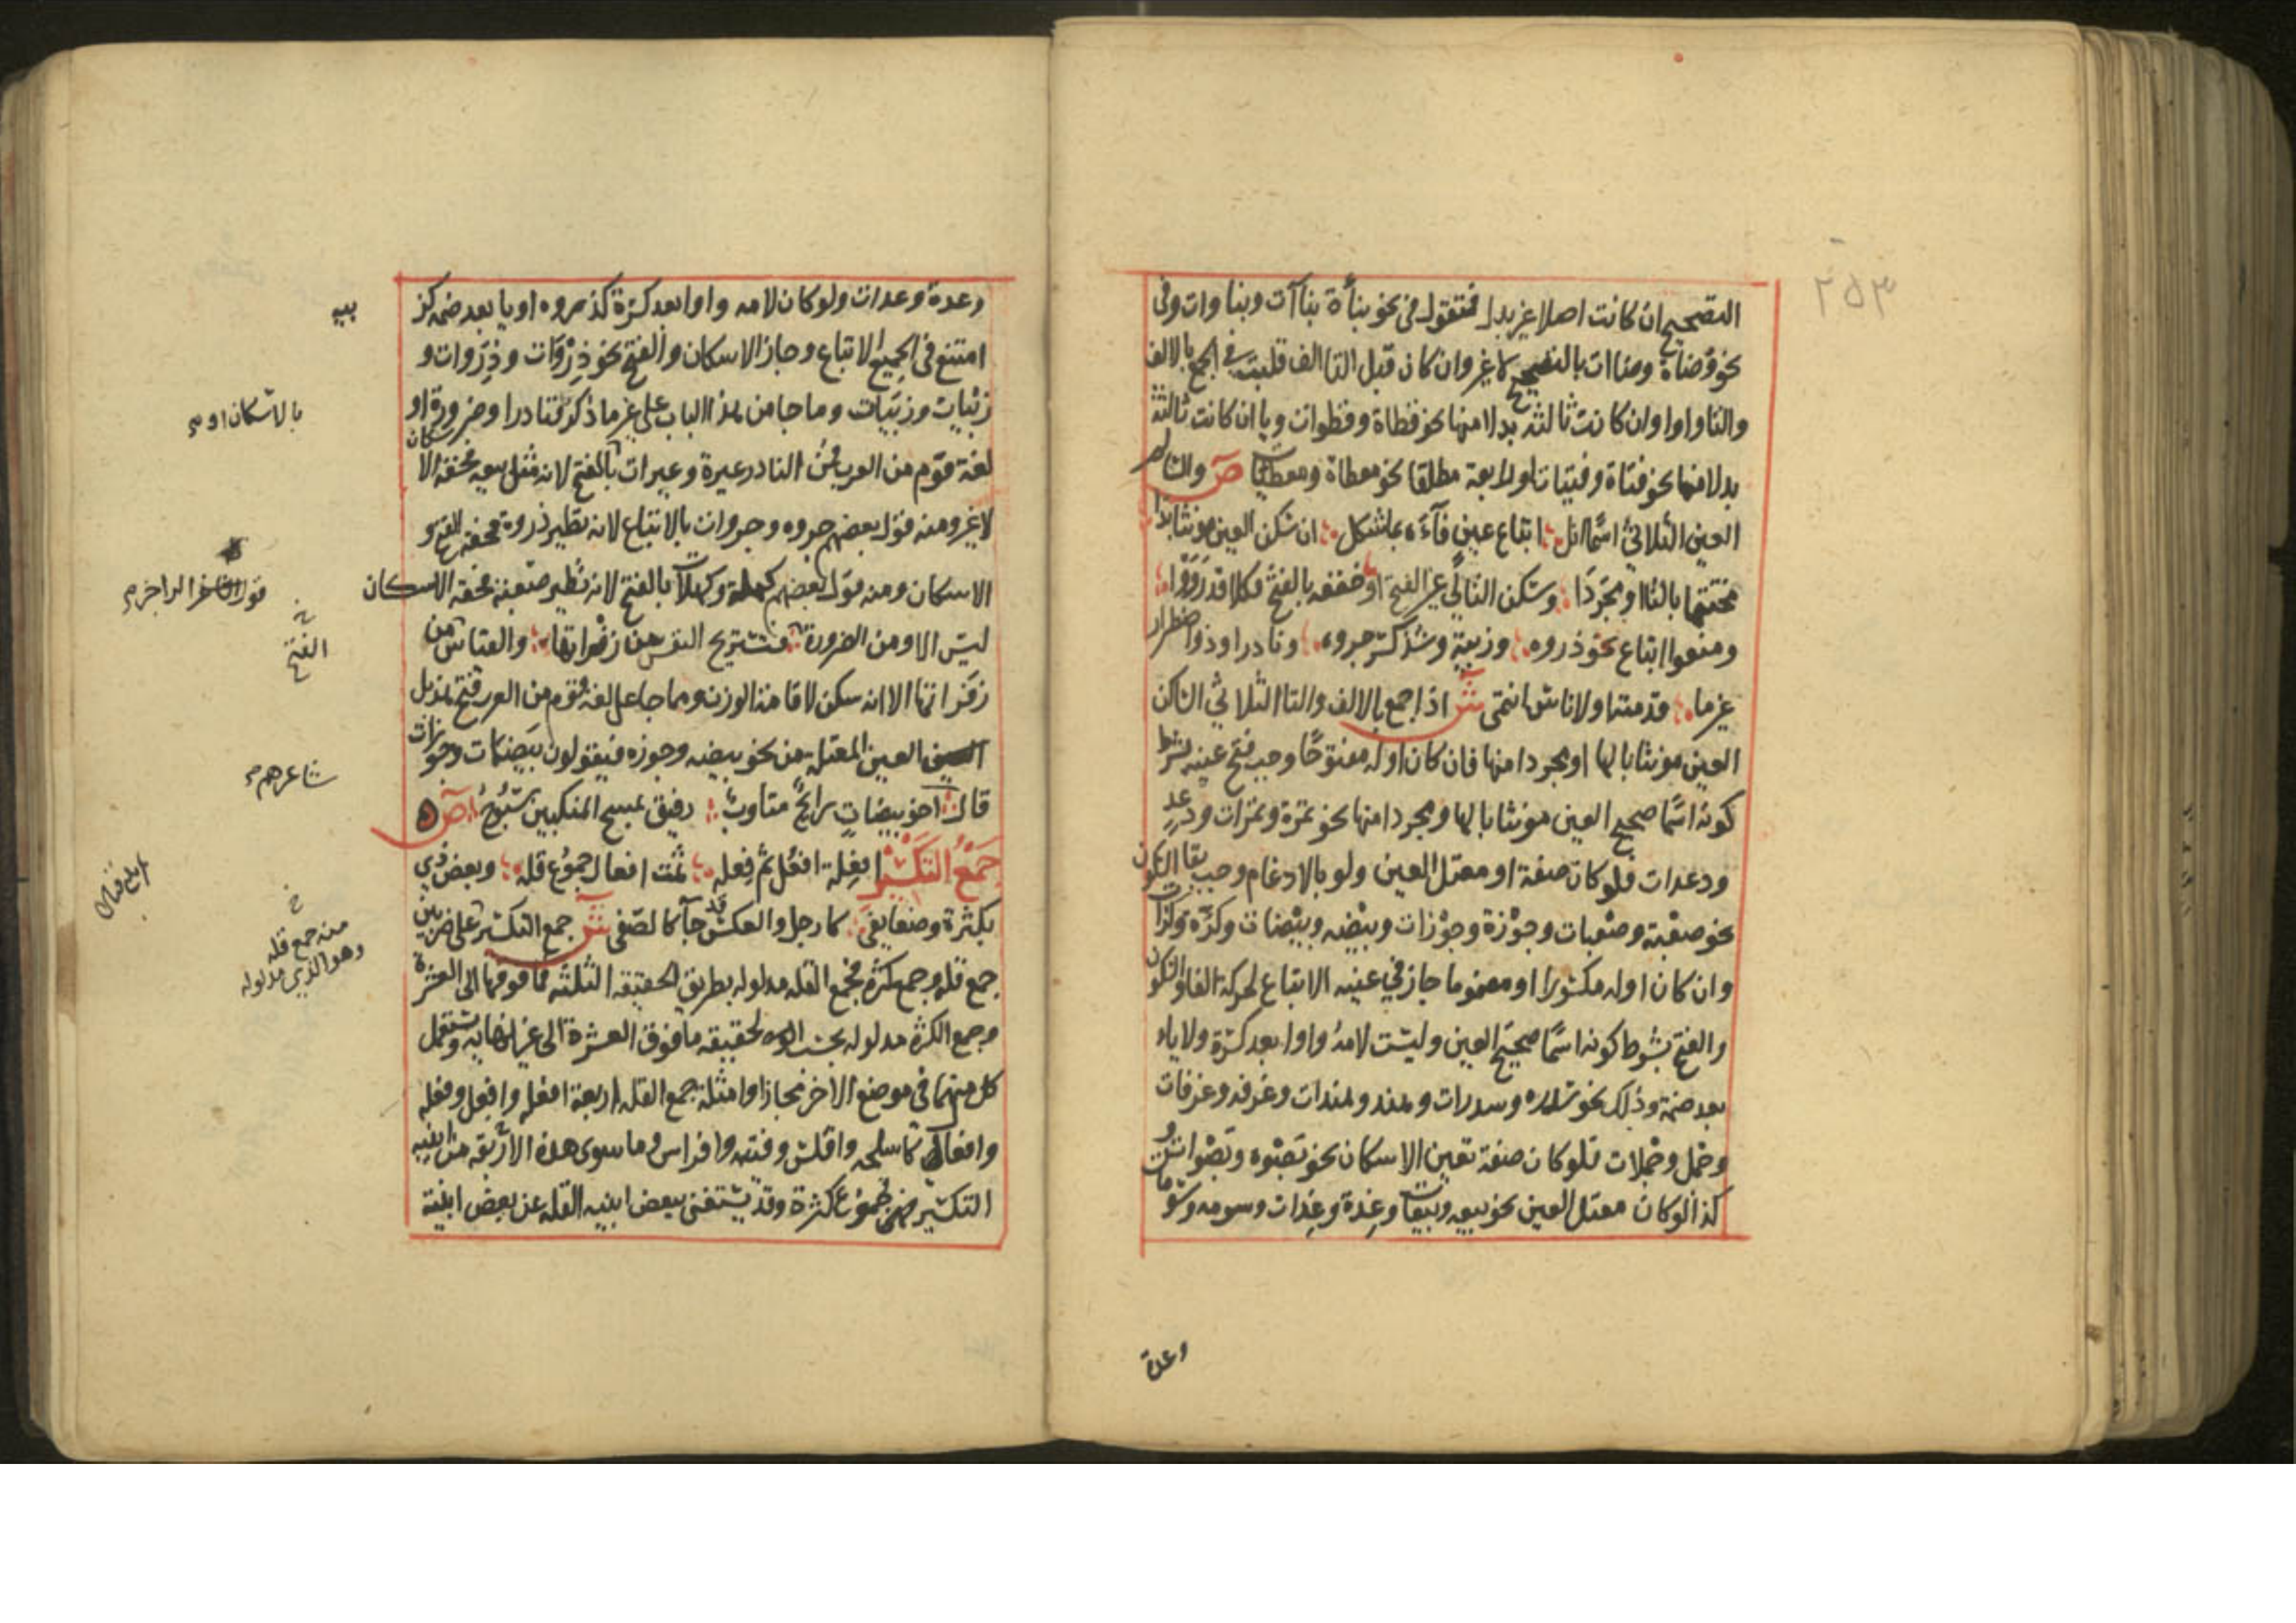 ٢٥٣
التصحيح ان كانت اصلا غير بدل فتقول فى نحو بنأة بناآت وبناوات وفى
نحو وضاة وضاات بالتصحيح لا غير وان كان قبل التا الف قلبت فى الجمع بالالف
والتا واوا وان كانت ثالثة بدلا منها نحو قطاة وقطوات ويا ان كانت ثالثة
بدلا منها نحو فتاة وفتيات اولا بعة مطلقا نحو معطاة ومعطيات ص والسالم
العين الثلاثي اسما انل اتباع عين فآءه بما شكل ان سكن العين مونثا بدا
مختتما بالتا او مجردا وسكن التالي غير الفتح او خففه بالفتح فكلا قد رووا
ومنعوا اتباع نحو ذروه وزبية وشذ كسر جروه ونادر او ذو اضطرار
غير ما قدمته او لاناس انتمى ش اذا جمع بالالف والتا الثلاثي الساكن
العين مونثا بالها او مجردا منها فان كان اوله مفتوحا وجب فتح عينه بشرط
كونه اسما صحيح العين مونثا بالها ومجردا منها نحو تمرة وتمرات ودعد
ودعدات فلو كان صفة او معتل العين ولو بالادغام وجب بقا السكون
نحو صعبة وصعبات وجوزة وجوزات وبيضه وبيضات وكرة وكرات
وان كان اوله مكسورا او مضموما جاز في عينه الاتباع لحركة الفا والسكون
والفتح بشرط كونه اسما صحيح العين وليست لامه واوا بعد كسرة ولا ياء
بعد ضمة وذلك نحو سدره وسدرات وهند وهندات وغرفه وغرفات
وجمل وجملات فلو كان صفة تعين الاسكان نحو نضوه ونضوات و
كذا لو كان معتل العين نحو بيعه وبيعات وعدة وعدات وسومه وسومات
وعدة
وعدة وعدات ولو كان لامه واوا بعد كسرة كذروه او يا بعد ضمه كز
بيه
امتنع فى الجميع الاتباع وجاز الاسكان والفتح نحو ذروات وذروات و
زبيات وزبيات وما جا من هذا الباب على غير ما ذكر فنادر او ضرورة او
بالاسكان او
لغة قوم من العرب فمن النادر عيرة وعيرات بالفتح لانه مثل بيعه فحقه الاسكان
لا غير ومنه قول بعضهم جروه وجروات بالاتباع لانه نظير ذروة فحقه الفتح و
الاسكان ومنه قول بعضهم كهلة وكهلات بالفتح لانه نظير صعبة فحقه الاسكان
قول الراجز
ليس الا ومن الضرورة فتستريح النفس من زفراتها والقياس
الفتح
زفراتها الا انه سكن لاقامة الوزن ومما جا على لغة قوم من العرب فتح هذيل
العين المعتل من نحو بيضه وجوزه فيقولون بيضات وجوزات
شاعرهم
قال اخو بيضات رايح متاوب رفيق بمسح المنكبين سبوح ص
جمع التكسير افعلة افعل ثم فعله ثمت افعال جموع قله وبعض ذي
بكثرة وضعا يفي كارجل والعكس جآ كالصفى ش جمع التكسير على ضربين
منه جمع قله
وهو الذي مدلوله
جمع قله وجمع كثره فجمع القله مدلوله بطريق الحقيقه الثلثه فما فوقها الى العشرة
وجمع الكثرة مدلوله بحسب الحقيقه ما فوق العشرة الى غير نهايه ويستعمل
كل منهما فى موضع الاخر مجازا وامثلة جمع القله اربعة افعله وافعل وفعله
وافعال كاسلحه وافلس وفتيه وافراس وما سوى هذه الاربعه من ابنيه
التكسير فهى جموع كثرة وقد يستغنى ببعض ابنيه القله عن بعض ابنية